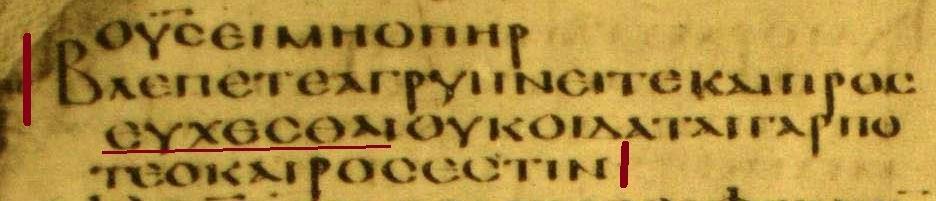 ΟΥϹΕΙΜΗΟΠΗΡ
ΒΛΕΠΕΤΕΑΓΡΥΠΝΕΙΤΕΚΑΙΠΡΟϹ
ΕΥΧΕϹΘΑΙΟΥΚΟΙΔΑΤΑΙΓΑΡΠΟ
ΤΕΟΚΑΙΡΟϹΕϹΤΙΝ